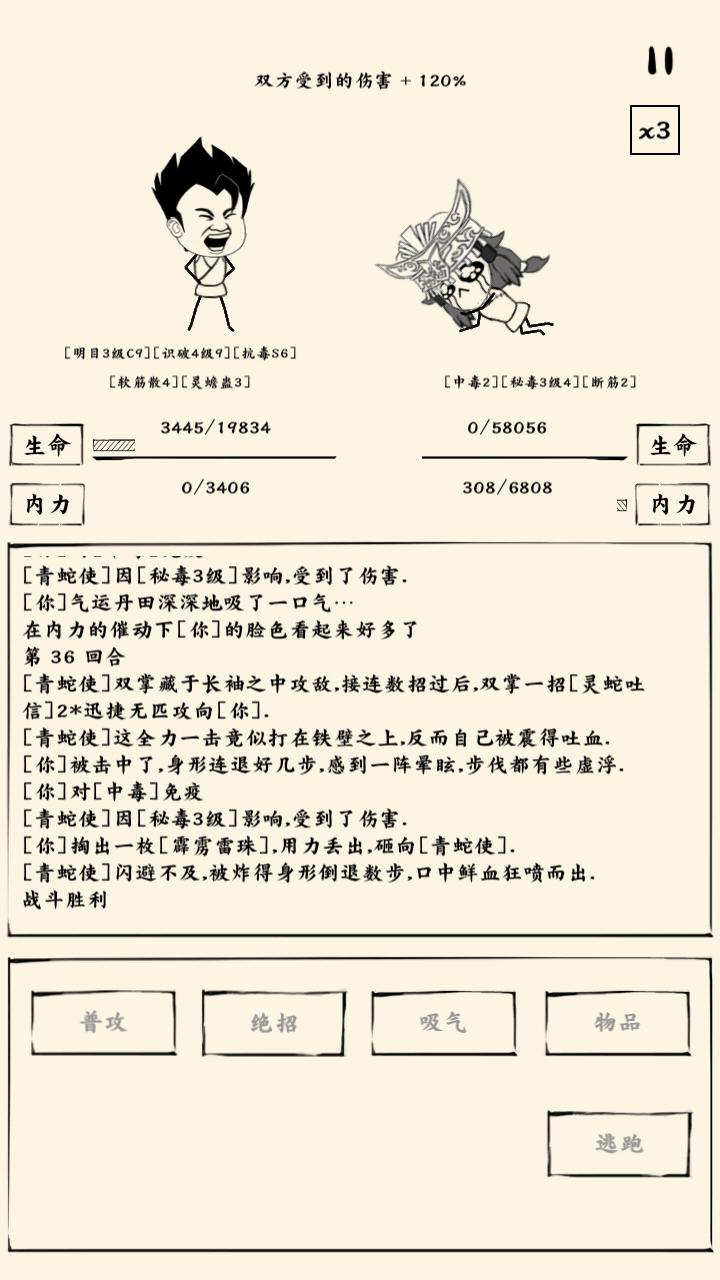 双方受到的伤害 + 120%
x3
[明目3级C9][识破4级9][抗毒S6]
[软筋散4][灵蟾蛊3]
[中毒2][秘毒3级4][断筋2]
生命
3445/19834
0/58056
生命
内力
0/3406
308/6808
内力
[青蛇使]因[秘毒3级]影响,受到了伤害.
[你]气运丹田深深地吸了一口气…
在内力的催动下[你]的脸色看起来好多了
第 36 回合
[青蛇使]双掌藏于长袖之中攻敌,接连数招过后,双掌一招[灵蛇吐
信]2*迅捷无匹攻向[你].
[青蛇使]这全力一击竟似打在铁壁之上,反而自己被震得吐血.
[你]被击中了,身形连退好几步,感到一阵晕眩,步伐都有些虚浮.
[你]对[中毒]免疫
[青蛇使]因[秘毒3级]影响,受到了伤害.
[你]掏出一枚[霹雳雷珠],用力丢出,砸向[青蛇使].
[青蛇使]闪避不及,被炸得身形倒退数步,口中鲜血狂喷而出.
战斗胜利
普攻
绝招
吸气
物品
逃跑